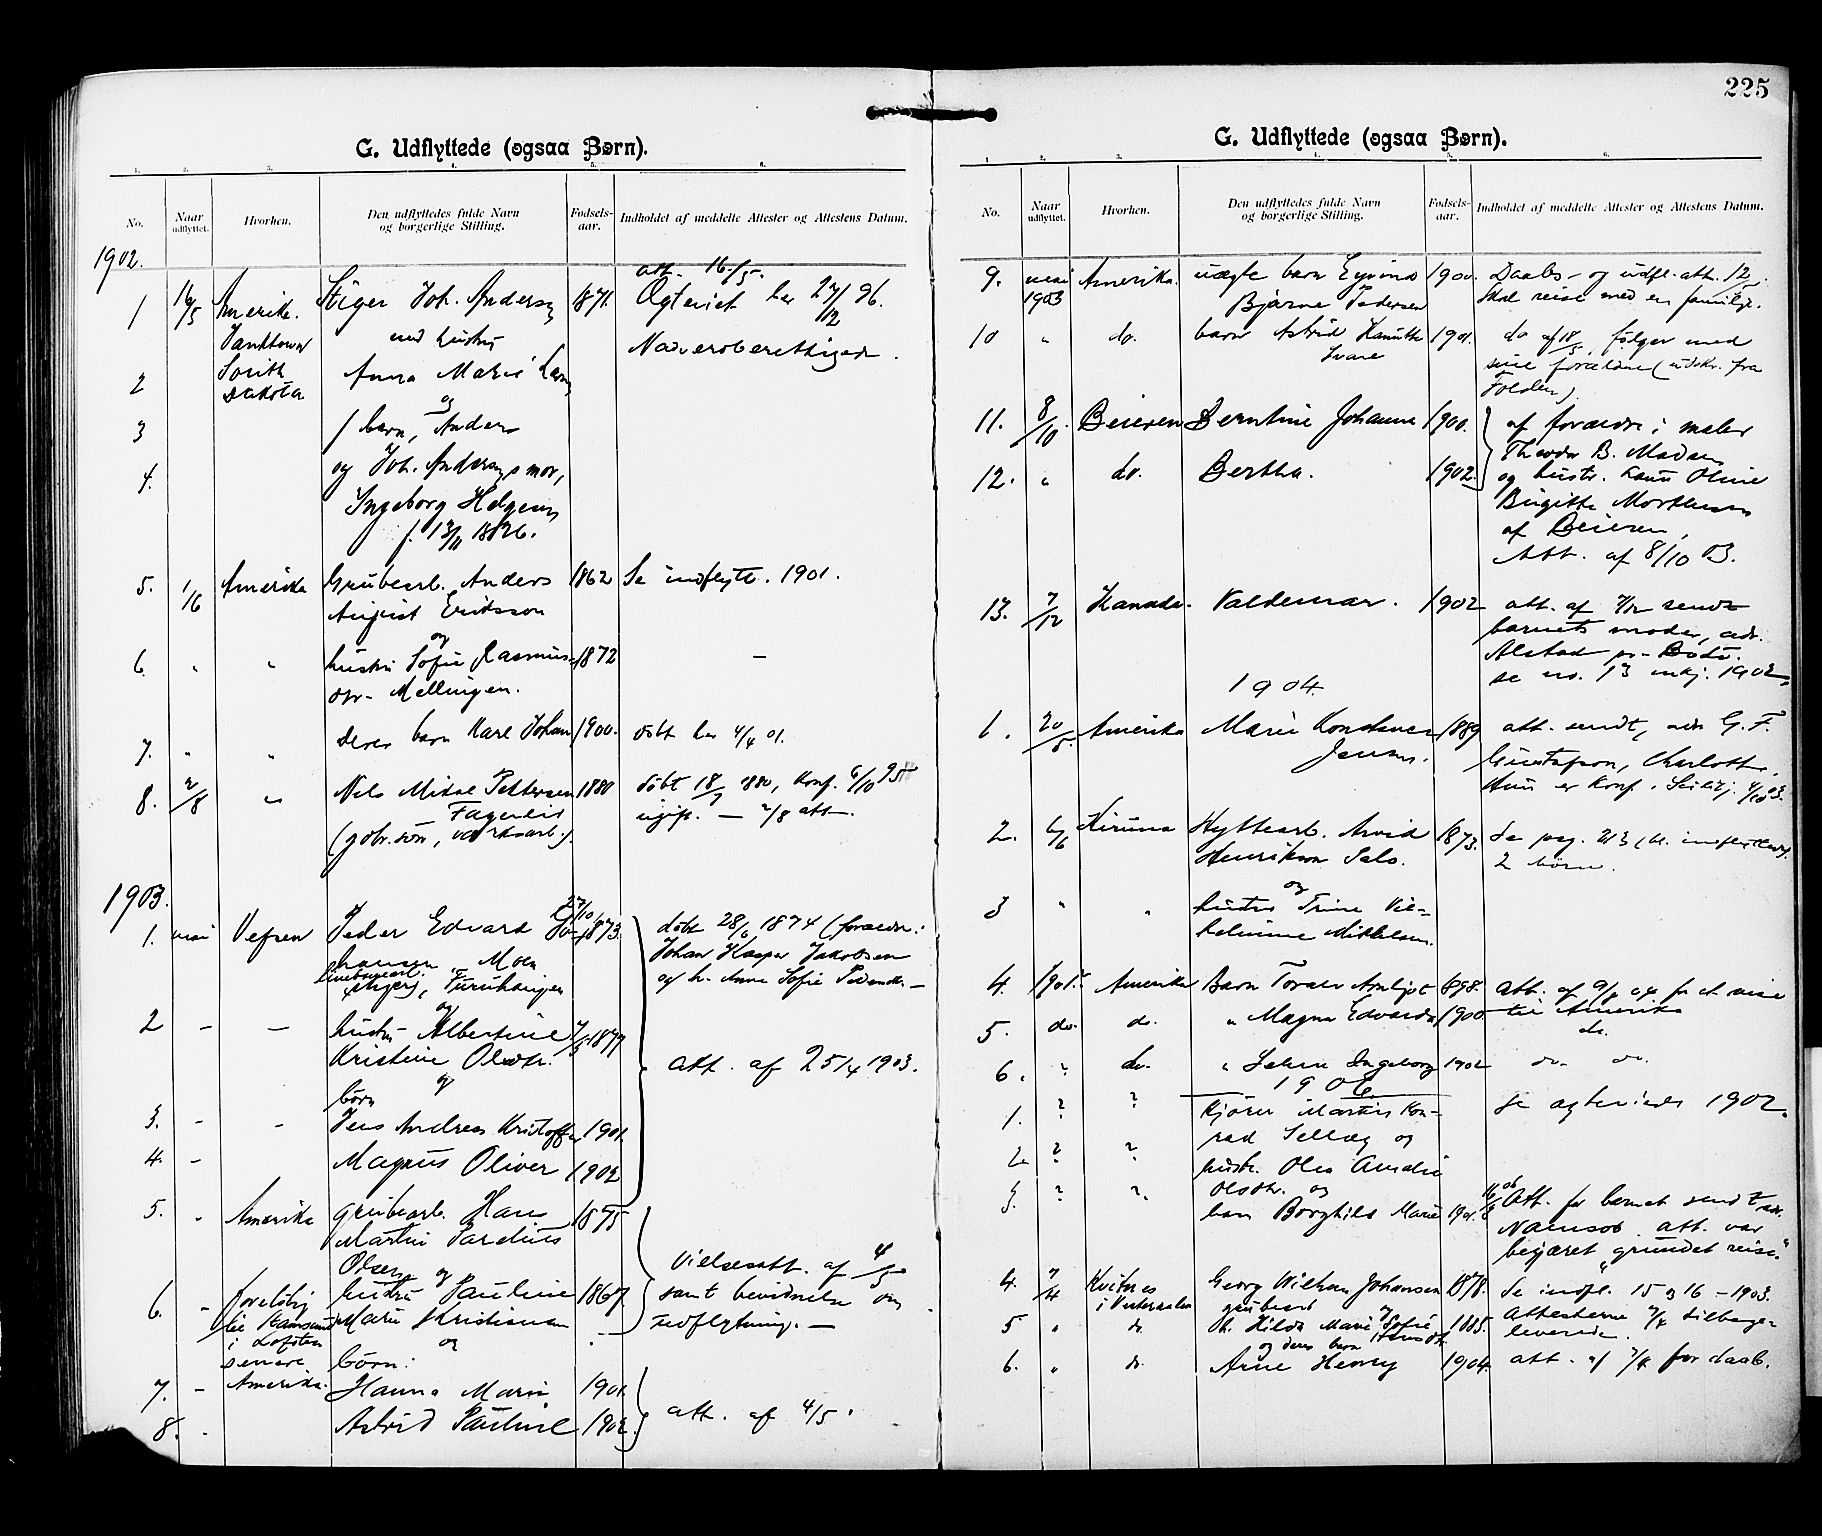 G. Udflyttede (ogsaa Børn).
1. 2. 3. 4. 5. 6.
No. Naar udflyttet. Hvorhen. Den udflyttedes fulde Navn og borgerlige Stilling. Fødsels-aar. Indholdet af meddelte Attester og Attestens Datum.
1902.
att. 16/5.
1 16/5 Amerika. Stiger Joh. Anders 1871. Ogteviet her 27/12 96.
med hustru
South Dakota
2 Anna Marie
og
3 1 barn, Anders
4. og Joh. mor,
Ingeborg Helges
f. 13/11 1826.
5. 1/6 Amerika Grubearb. Anders 1862 Se indflytt. 1901.
August Eriksson
og
6. " " hustru Sofie Rasmus- 1872 —
Mellingen.
7. " " deres barn Karl Johan 1900. døbt her 4/4 01.
8. 2/8 " Nils Mikal Pettersen 1880 døbt 18/7 1880, konf. 6/10 95
Fagerlid ugift. — 2/8 att.
(gbr. søn, verksarb.).
1903.
1. mai Vefsen Peder Edvard 27/10 1873. døbt 28/6 1874 (forældre:
hansen Moen Johan Kaspar Jakobsen
og h. Anne Sofie
og
2 — — hustru Albertine 1877
Kristine Olsdtr. att. af 25/4 1903.
og
børn
3. — — Jens Andreas Kristoffer 1901.
4. — Magnus Oliver 1902
5. " Amerika grubearb. Hans 1875
Martin Pardelius
Olsen og Vielsesatt. af 4/5
6. " foreløbig hustru Pauline 1867. samt bevidnelse om
til Marie Kristians udflytning. —
i Lofoten og
senere børn:
7. — Amerika. Hanna Marie 1901.
8. . Astrid Pauline 1902. att. af 4/5.
225
G. Udflyttede (ogsaa Børn).
1. 2. 3. 4. 5. 6.
No. Naar udflyttet. Hvorhen. Den udflyttedes fulde Navn og borgerlige Stilling. Fødsels-aar. Indholdet af meddelte Attester og Attestens Datum.
9. mai Amerika. uægte barn Eyvind 1900. Daabs- og udfl. att. 12/5.
1903 Bjarne Pedersen Skal reise med en familje.
10 " do. barn Astrid Kamitha 1901. do af 18/5, følger med
sine forældre (udskr. fra
Folden).
11. 8/10. Beieren Berntine Johanna 1900. af forældre: maler
Theodor B. Madsen
12. " do. Bertha. 1902. og hustr. Oline
Birgitte
af Beieren,
Att. af 8/10 03.
13. 7/12 Kanada. Valdemar. 1902 att. af 7/12 sendt
barnets moder, adr.
Alstad pr. Bodø.
se no. 13 1902.
1904.
1. 20/5. Amerika Marie Konstanse 1889 att. sendt, adr G. F.
Jens. Gustafson, Charlotte.
Hun er konf. i
2. 6/6 Kiruna Hyttearb. Arvid 1873. Se pag. 213,
Henrikson Salo. 2 børn.
og
3 " " hustru Trine Vil=
helmine Mikkelsen.
4. 1905. Amerika Barn Toralv Arnljot 1898. att. af 9/8 04 for at reise
5. do. do. " Magna Edvarda 1900 til Amerika
do.
6. " do. " Ingeborg 1902 do. do.
1906.
1. ? ? Kjører Martin Kon- Se ægteviede 1902.
rad Selleg og
2 ? ? hustr. Olea Amalie
Olsdtr. og
3. ? ?. barn Borghild Marie 1901. Att. for barnet sendt adr.
Namsos. att. var
begjæret "grundet reise."
4. 7/4 Kvitnes Georg Wilhelm Johansen 1878. Se indfl. 15 og 16 - 1903.
i Vesteraalen grubearb. og Attesterne 7/4 tilbage-
5 " do. h. Hilda Marie Sofie 1885. leverede.
og deres barn
6. " do. Arne Henry 1904. att. af 7/4 for daab.